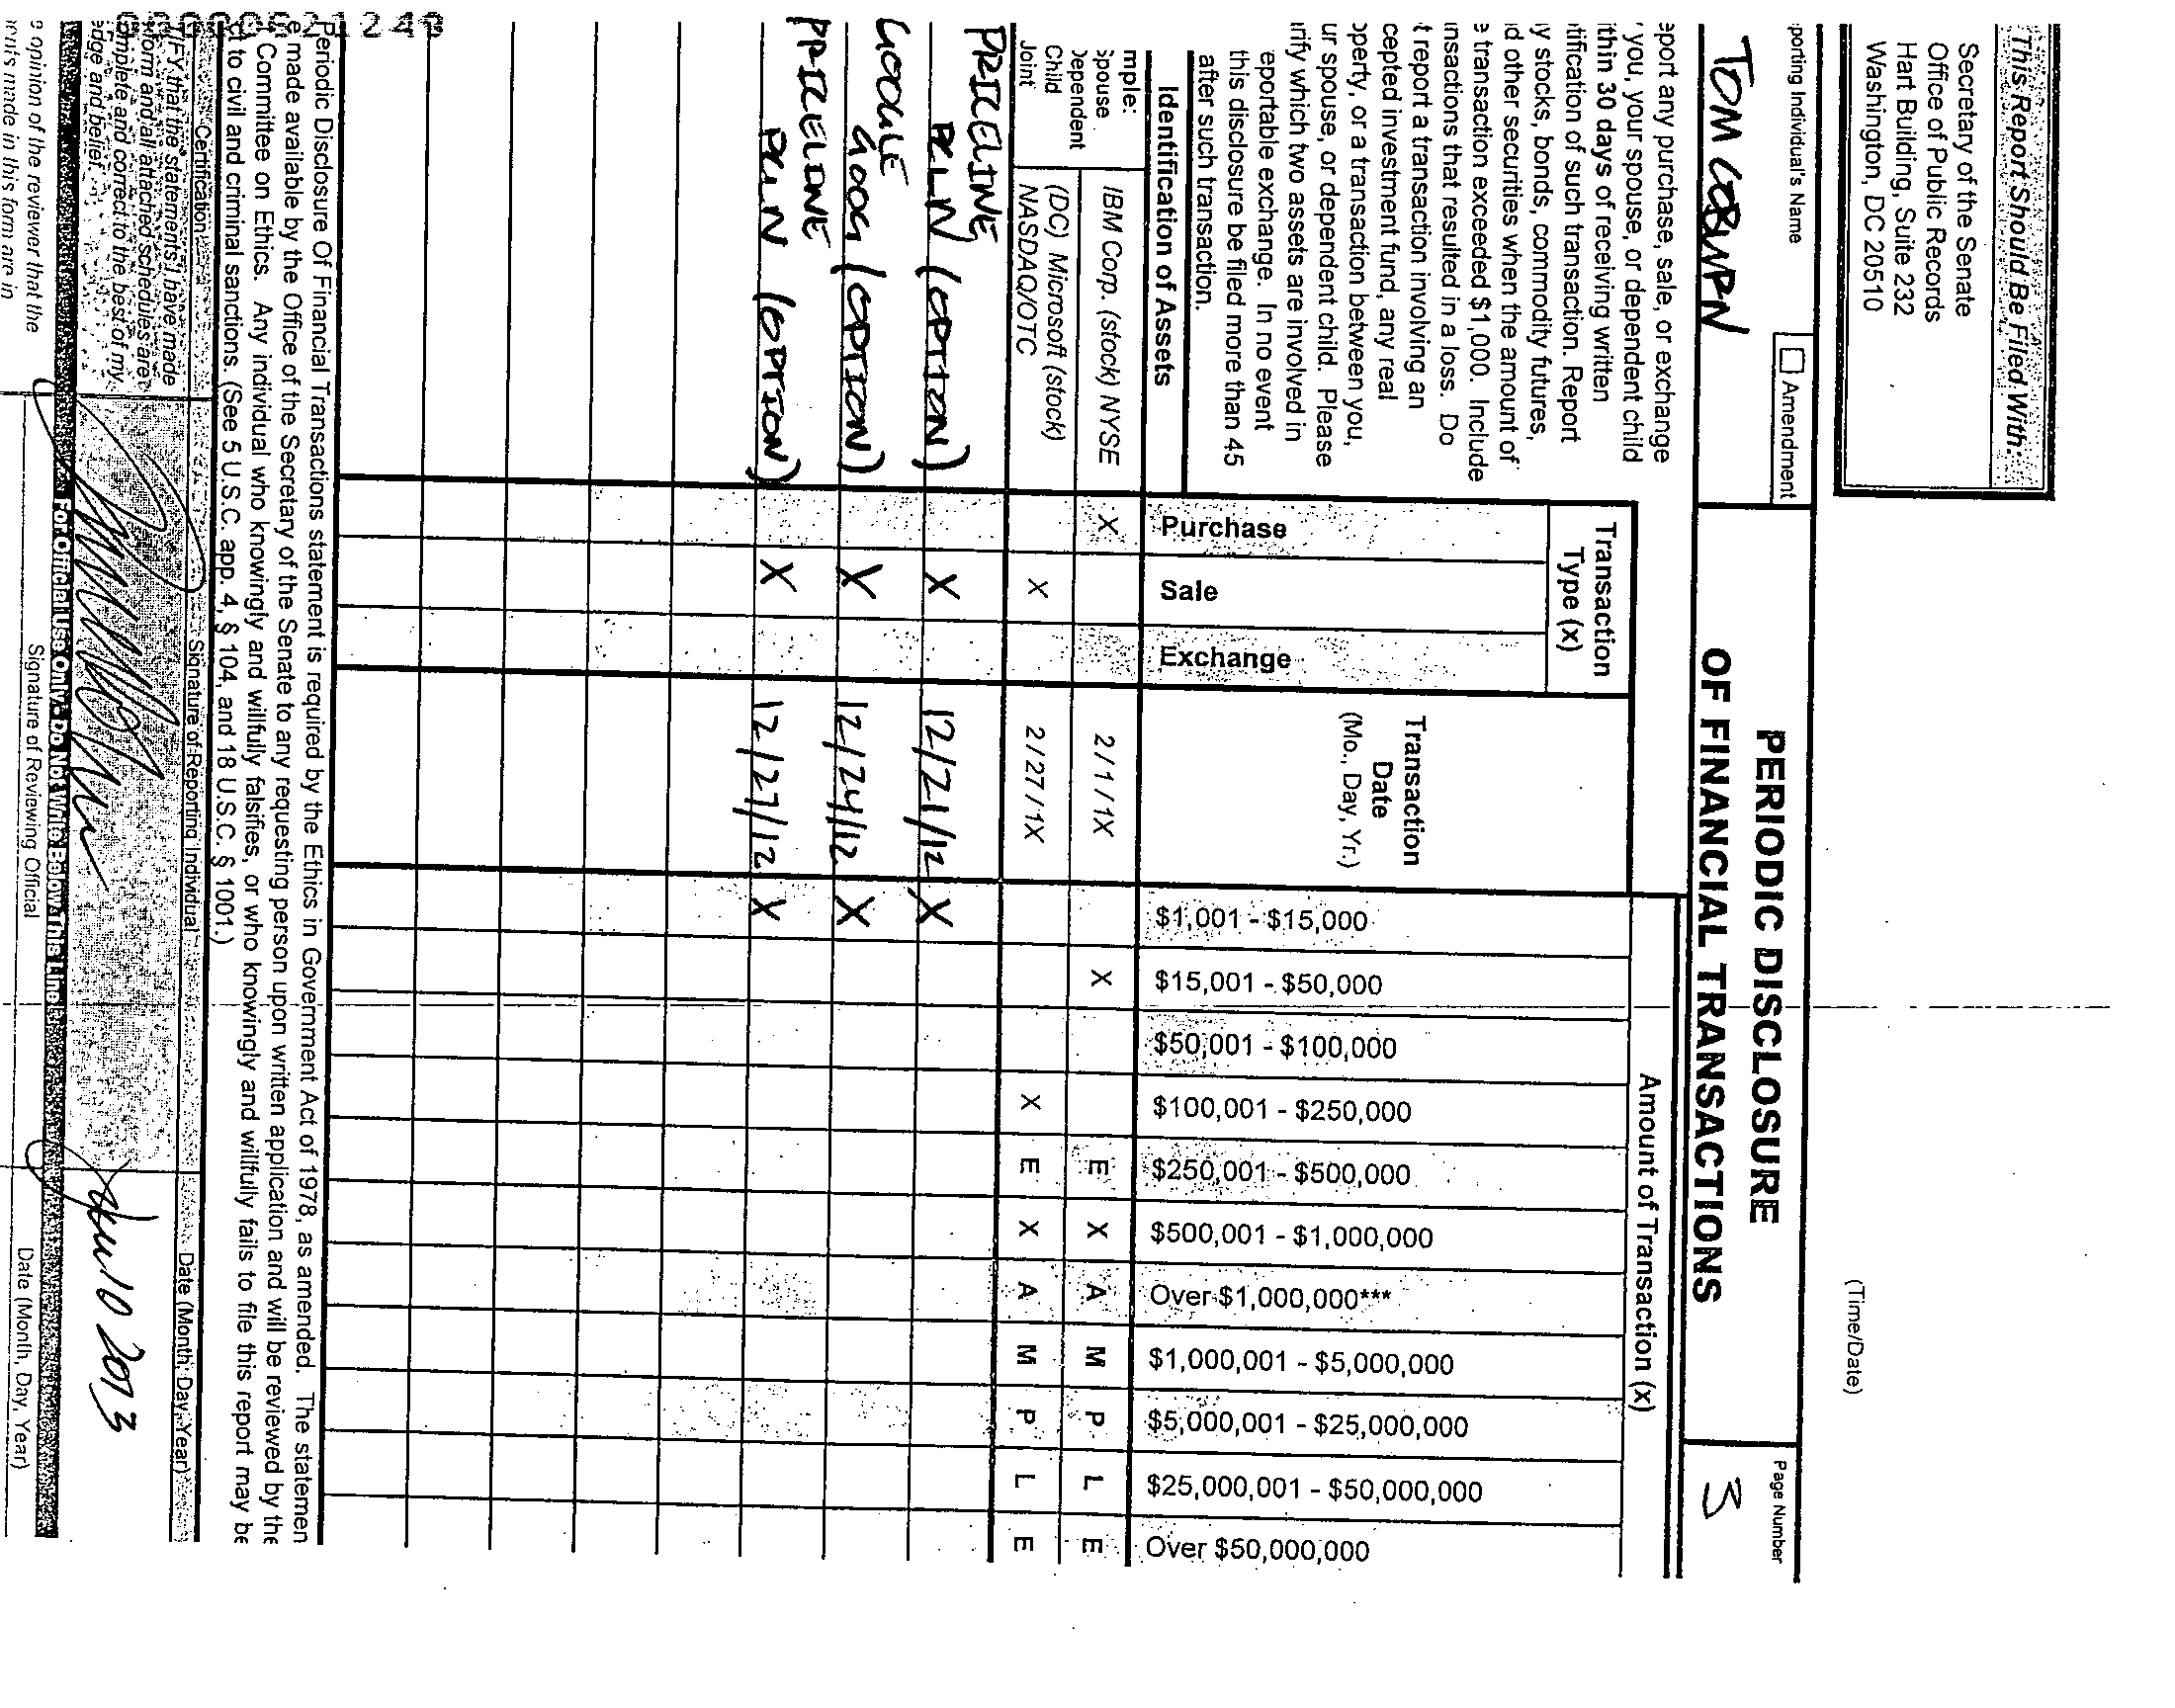 This Report Should Be Filed With:
Secretary of the Senate
Office of Public Records
Hart Building, Suite 232
Washington, DC 20510
(Time/Date)
porting Individual's Name
Amendment
PERIODIC DISCLOSURE
OF FINANCIAL TRANSACTIONS
Page Number
3
TOM COBURN
eport any purchase, sale, or exchange
you, your spouse, or dependent child
ithin 30 days of receiving written
tification of such transaction. Report
y stocks, bonds, commodity futures,
d other securities when the amount of
e transaction exceeded $1,000. Include
nsactions that resulted in a loss. Do
t report a transaction involving an
cepted investment fund, any real
operty, or a transaction between you,
ur spouse, or dependent child. Please
rify which two assets are involved in
eportable exchange. In no event
this disclosure be filed more than 45
after such transaction.
Transaction
Type (x)
Transaction
Date
(Mo., Day, Yr.)
Amount of Transaction (x)
Identification of Assets
Purchase
Sale
Exchange
$1,001 - $15,000
$15,001 - $50,000
$50,001 - $100,000
$100,001 - $250,000
$250,001 - $500,000
$500,001 - $1,000,000
Over $1,000,000***
$1,000,001 - $5,000,000
$5,000,001 - $25,000,000
$25,000,001 - $50,000,000
Over $50,000,000
mple:
Spouse
Dependent
Child
Joint
IBM Corp. (stock) NYSE X 2/1/1X X E X A M P L E
(DC) Microsoft (stock)
NASDAQ/OTC X 2/27/1X X E X A M P L E
PRICELINE
PCLN (OPTION) X 12/21/12 X
GOOGLE
GOOG (OPTION) X 12/24/12 X
PRICELINE
PCLN (OPTION) X 12/27/12 X
Periodic Disclosure Of Financial Transactions statement is required by the Ethics in Government Act of 1978, as amended. The statemen
e made available by the Office of the Secretary of the Senate to any requesting person upon written application and will be reviewed by the
t Committee on Ethics. Any individual who knowingly and willfully falsifies, or who knowingly and willfully fails to file this report may be
ct to civil and criminal sanctions. (See 5 U.S.C. app. 4, § 104, and 18 U.S.C. § 1001.)
Certification
Signature of Reporting Individual
Date (Month, Day, Year)
TIFY that the statements I have made
form and all attached schedules are
omplete and correct to the best of my
edge and belief.
Jan 10 2013
For Official Use Only. Do Not Write Below This Line.
e opinion of the reviewer that the
ents made in this form are in
Signature of Reviewing Official
Date (Month, Day, Year)